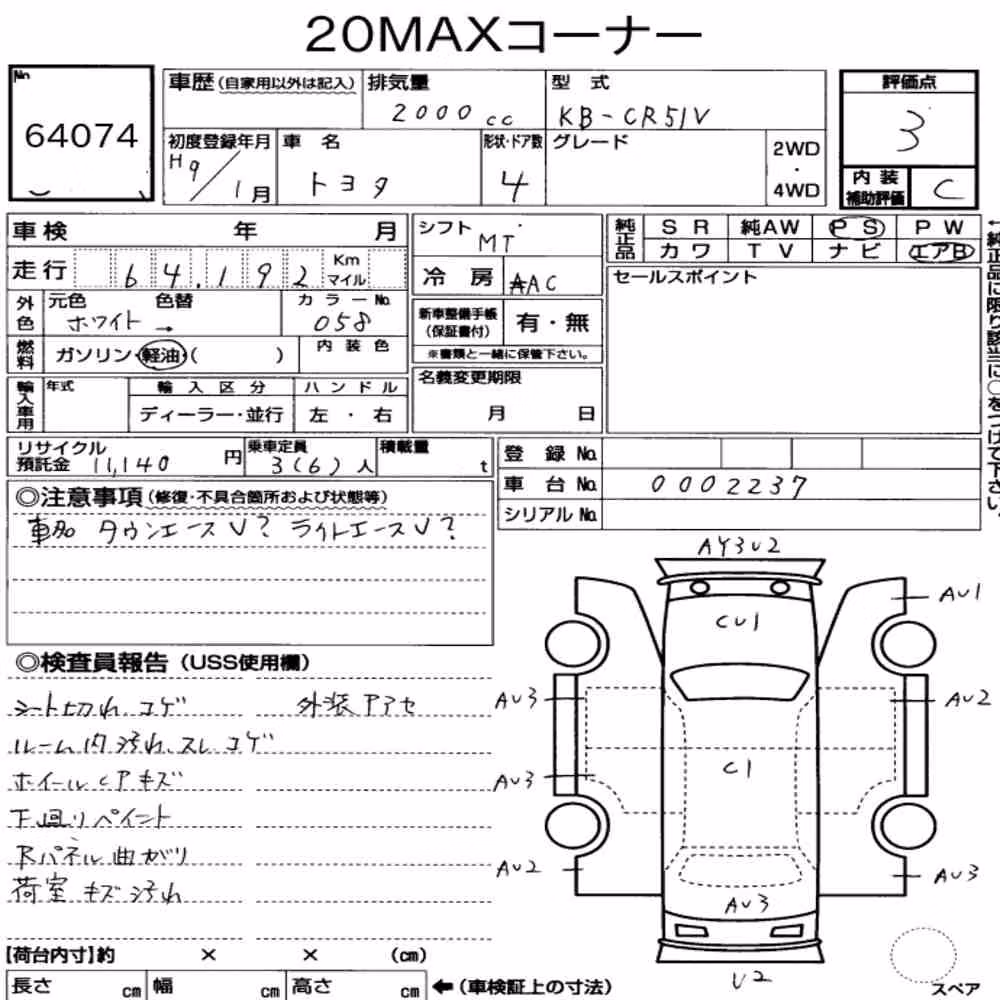 20MAXコーナー
No 64074
車歴(自家用以外は記入) 排気量 2000cc 型式 KB-CR51V
評価点 3
初度登録年月 H9/1月 車名 トヨタ 形状・ドア数 4 グレード 2WD・4WD
内装補助評価 C
車検 年 月
走行 64,192 Km マイル
外色 元色 ホワイト → 色替 カラーNo. 058
燃料 ガソリン・軽油・( ) 内装色
輸入車用 年式 輸入区分 ディーラー・並行 ハンドル 左・右
シフト MT
冷房 AAC
新車整備手帳(保証書付) 有・無
※書類と一緒に保管下さい。
名義変更期限 月 日
純正品 SR 純AW PS PW
カワ TV ナビ エアB
セールスポイント
←純正品に限り該当に○をつけて下さい。
リサイクル預託金 11,140円 乗車定員 3(6)人 積載量 t
登録No.
車台No. 0002237
シリアルNo.
◎注意事項(修復・不具合箇所および状態等)
車名 タウンエースV? ライトエースV?
◎検査員報告(USS使用欄)
シート切れ コゲ 外装アアセ
ルーム内汚れ、スレ コゲ
ホイールCPキズ
下廻りペイント
Rパネル曲がり
荷室 キズ汚れ
AY3U2
AU1
CU1
AU3 AU2
C1
AU3
AU2 AU3
AU3
U2
スペア
【荷台内寸】約 × × (cm)
長さ cm 幅 cm 高さ cm ←(車検証上の寸法)